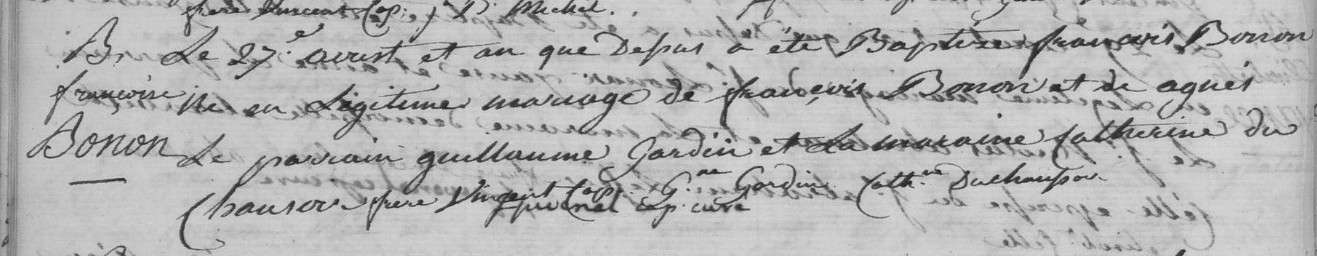 frere Vincent Cap. P. Michel.
B. Le 27.e aoust et an que Depus a été Baptize françois Bonon
françoise né en Légitime mariage de françois Bonon et de agnés
Bonon Le parrain guillaume Gardin et La maraine Catherine du
Chausoir frere Vincent Cap. G.me Gardin Cath.ne Duchausoir
cap. curé